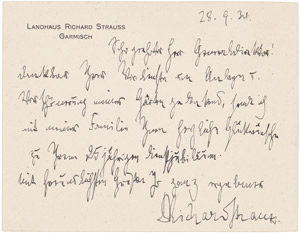 LANDHAUS RICHARD STRAUSS
GARMISCH
28. 9. 31.
Sehr geehrter Herr Generaldirektor!
Verdienste um Anlage u.
Verschönerung meines Gartens gedenkend, sende ich
mit meiner Familie Ihnen herzliche Glückwünsche
zu Ihrem 25jährigen Dienstjubiläum.
Mit freundlichsten Grüßen Ihr ganz ergebener
DrRichardStrauss.